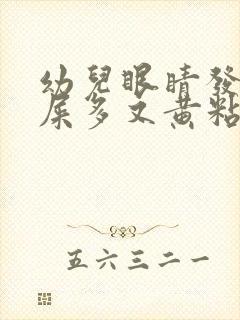 幼兒眼睛發
屎多又黃粘
五六三二一